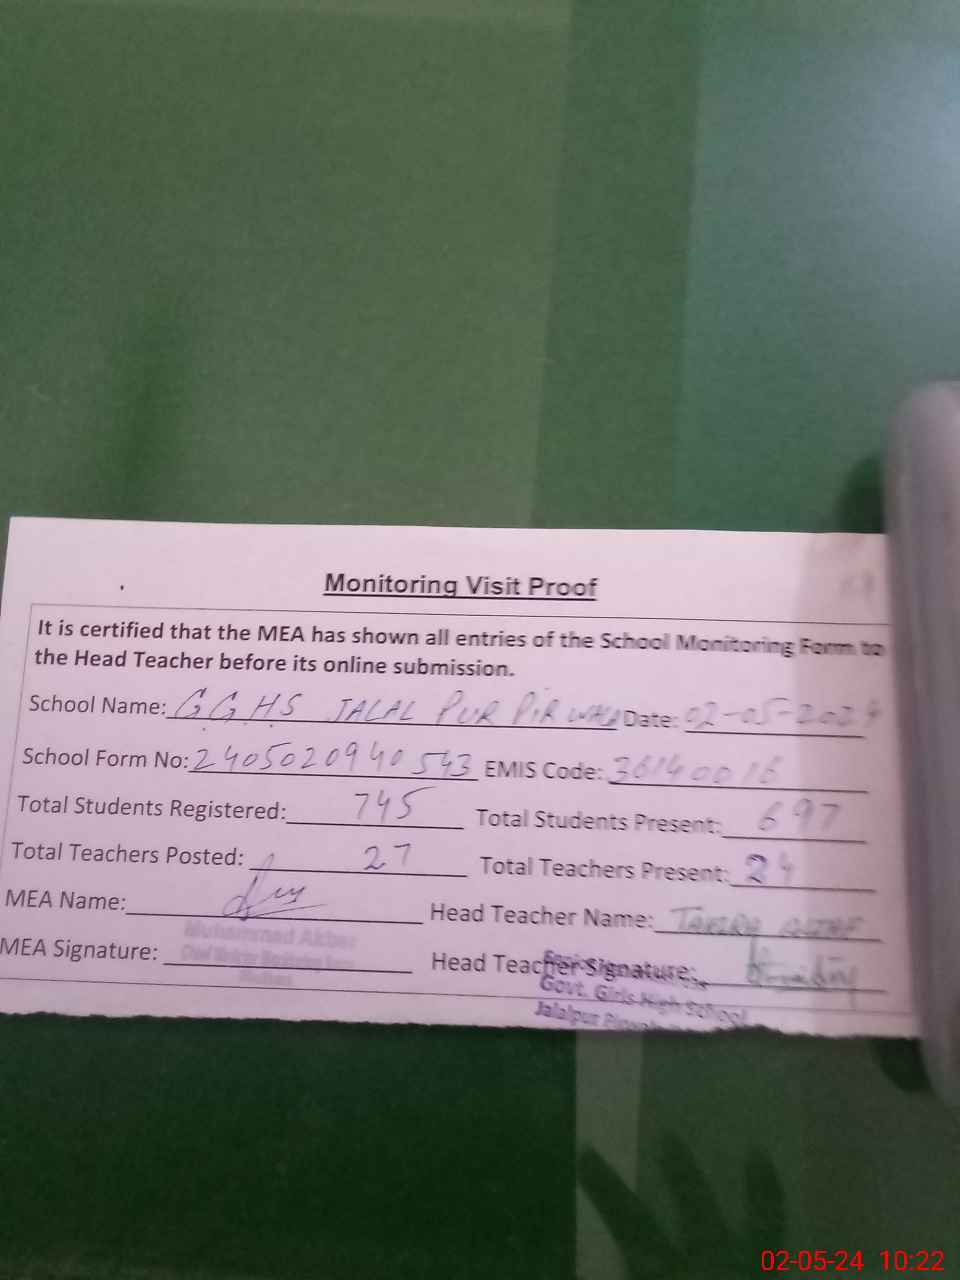 Monitoring Visit Proof
It is certified that the MEA has shown all entries of the School Monitoring Form to
the Head Teacher before its online submission.
School Name: GGHS JALAL PUR PIR WALA Date: 02-05-2024
School Form No: 2405020940543 EMIS Code: 36140016
Total Students Registered: 745 Total Students Present: 697
Total Teachers Posted: 27 Total Teachers Present: 24
MEA Name: Head Teacher Name:
Muhammad Akbar
MEA Signature: Head Teacher Signature:
Govt. Girls High School
Jalalpur
02-05-24 10:22